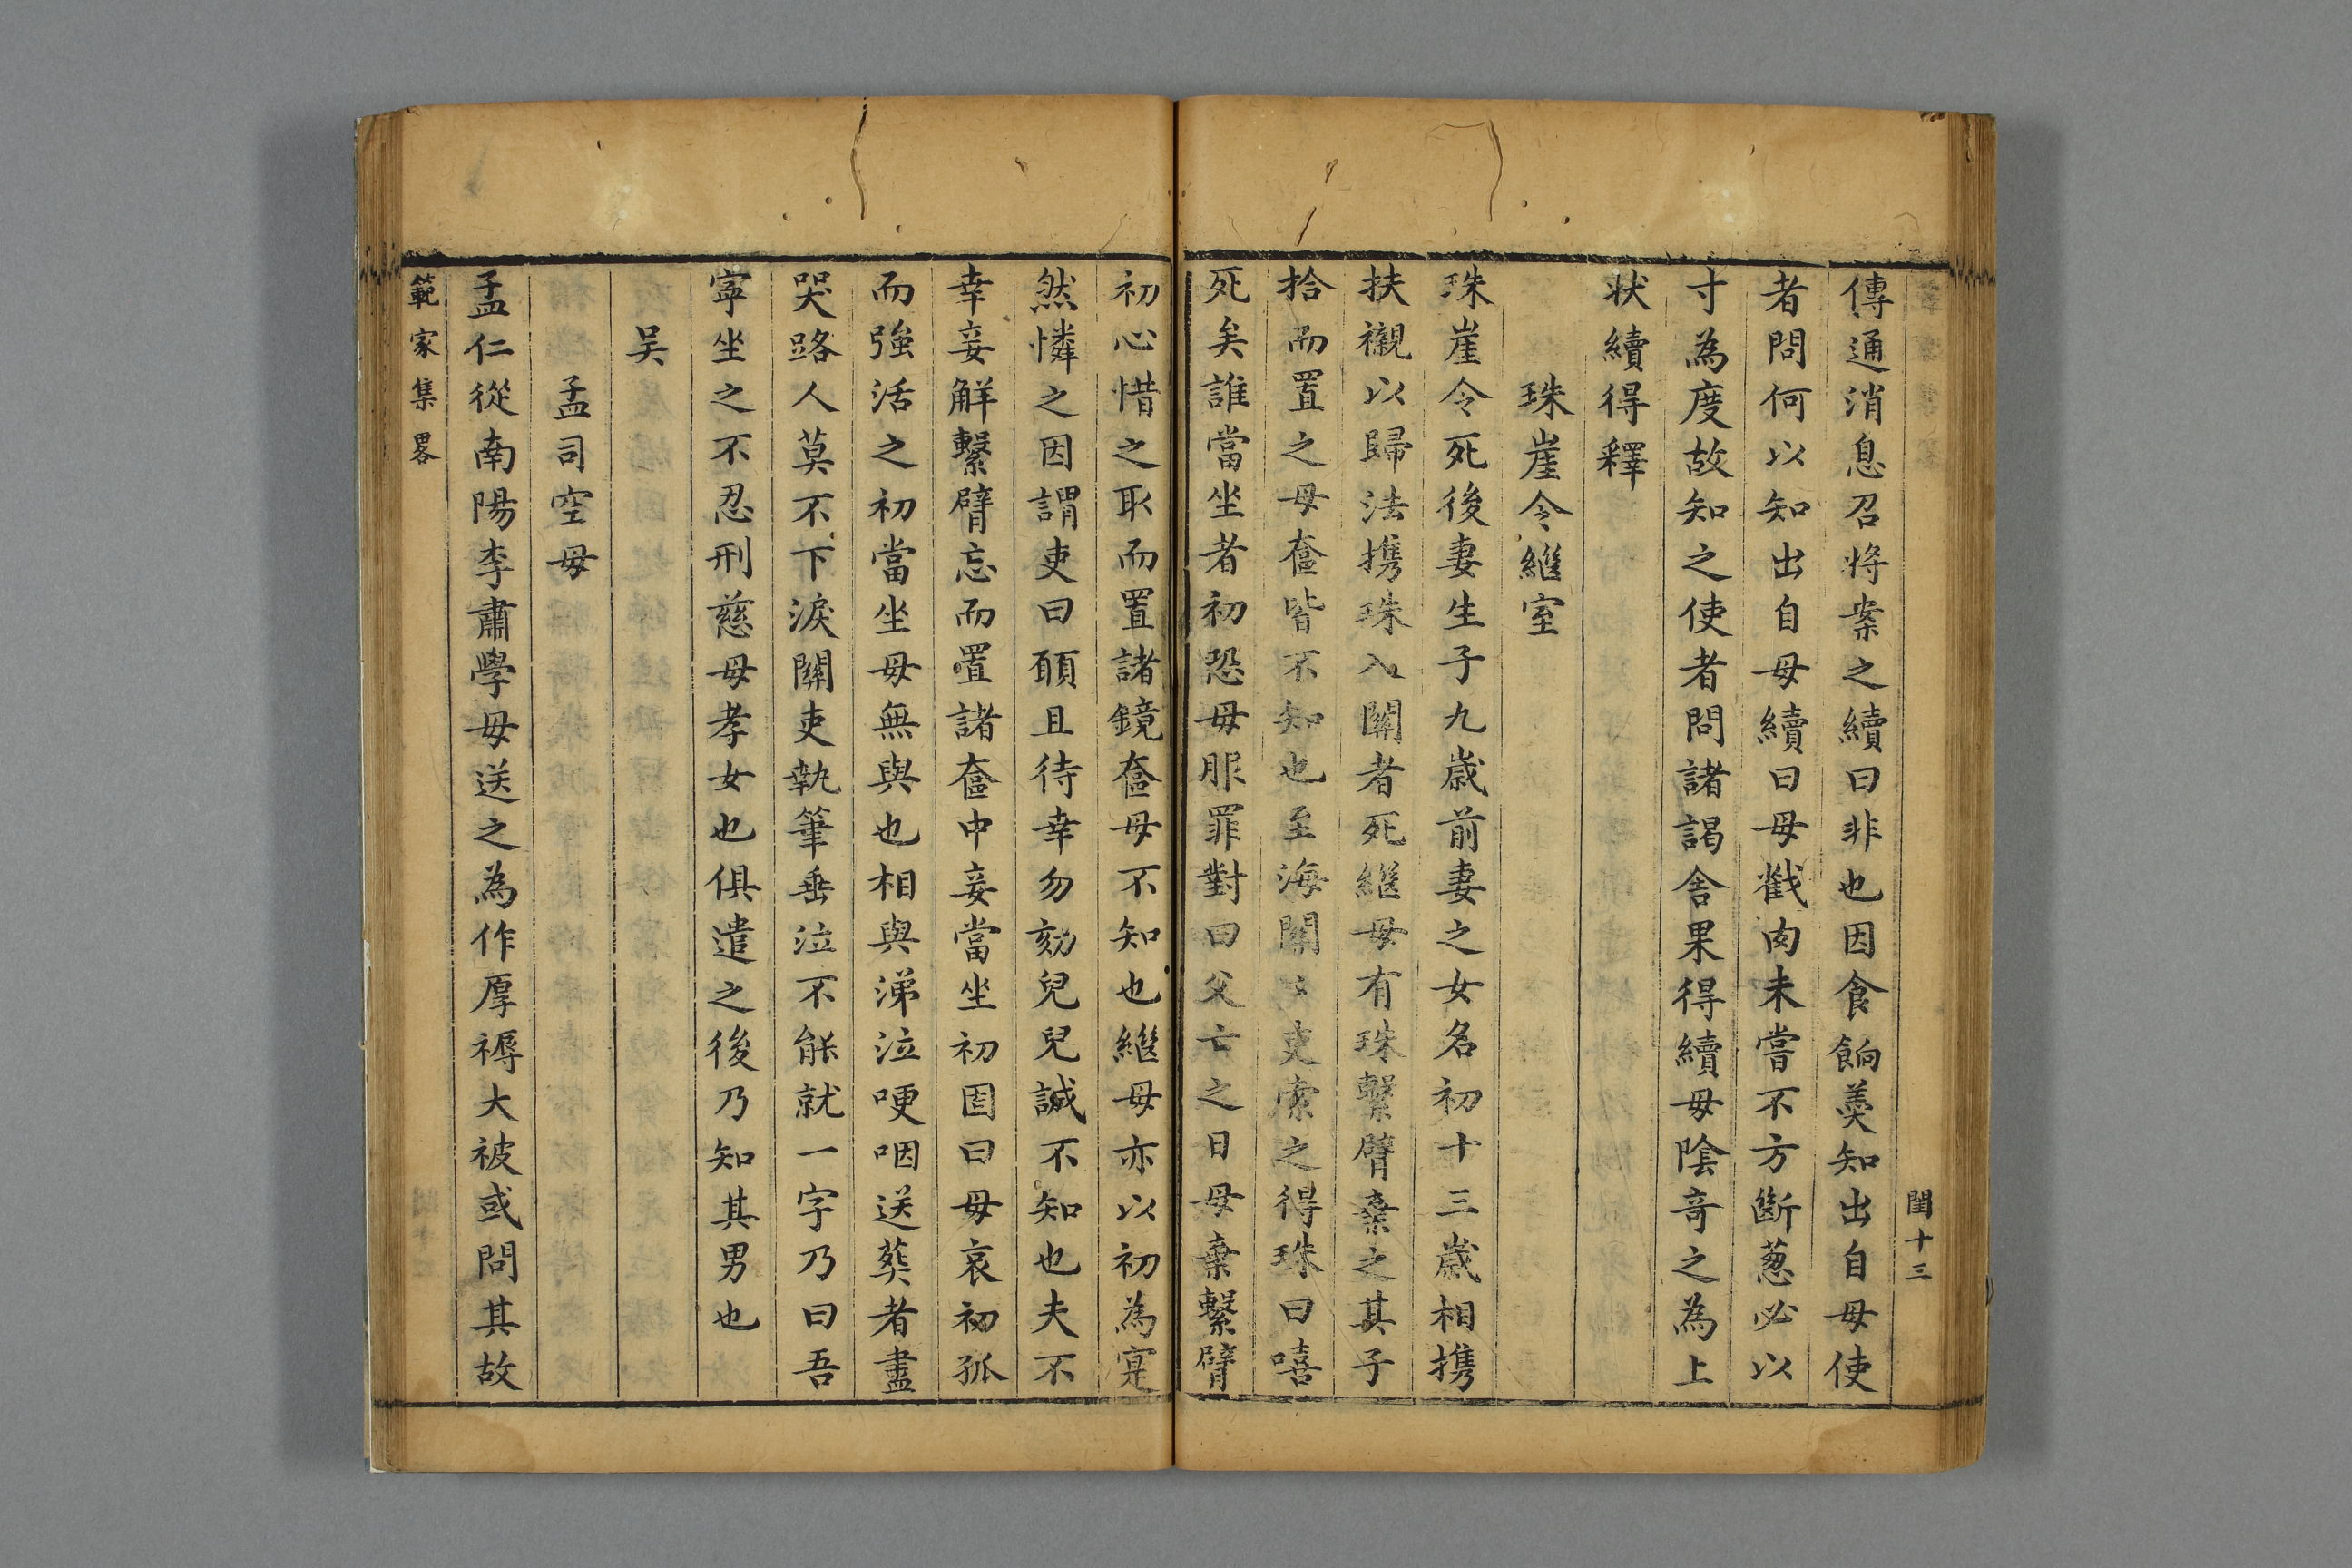 閨十三
傳通消息召將案之續曰非也因食餉羮知出自母使
者問何以知出自母續曰母截肉未嘗不方斷葱必以
寸為度故知之使者問諸謁舍果得續母陰竒之為上
狀續得釋
珠崖令繼室
珠崖令死後妻生子九歲前妻之女名初十三歲相携
扶襯以歸法携珠入關者死繼母有珠繫臂棄之其子
拾而置之母奩皆不知也至海關〻吏索之得珠曰嘻
死矣誰當坐者初恐母服罪對曰父亡之日母棄繫臂
初心惜之取而置諸鏡奩母不知也繼母亦以初為寔
然憐之因謂吏曰頋且待幸勿劾兒兒誠不知也夫不
幸妾解繫臂忘而置諸奩中妾當坐初固曰母哀初孤
而強活之初當坐母無與也相與涕泣哽咽送葬者盡
哭路人莫不下淚關吏執筆垂泣不能就一字乃曰吾
寧坐之不忍刑慈母孝女也俱遣之後乃知其男也
吴
孟司空母
孟仁從南陽李肅學母送之為作厚褥大被或問其故
範家集畧